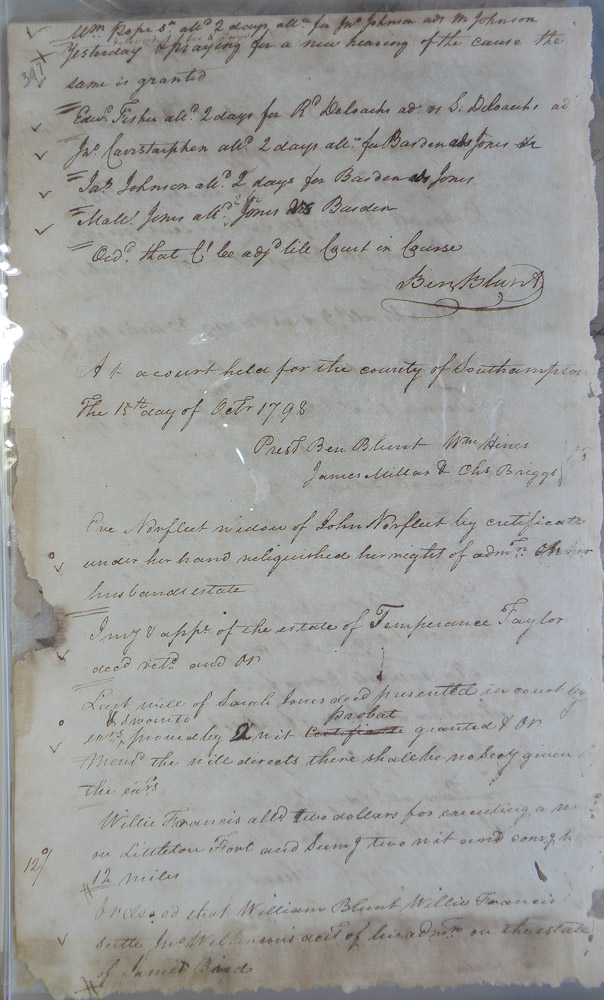 Wm Pope Sr alld 2 days alla for Jno Johnson ads M Johnson
Yesterday & praying for a new hearing of the cause the
397
same is granted
Edwd Fisher alld 2 days for Rd Deloachs ad vs S. Deloachs ad
Jno Carrstarphen alld 2 days alla for Barden ads Jones
Jas Johnson alld 2 days for Barden ads Jones
Mattw Jones alld Jones vs Barden
Ordd that Ct be adjd till Court in Course
Ben Blunt
At a court held for the county of Southampton
The 15th day of Octr 1798
Prest Ben Blunt Wm Hines
James Millar & Chs Briggs
Eve Norfleet widow of John Norfleet by certificate
under her hand relinquished her right of admrn on her
husbands estate
Invy & appt of the estate of Temperance Taylor
decd retd and OR
Last will of Sarah Jones decd presented in court by
& sworn to Probat
exrs, proved by 2 wit Certificate granted & OR
Memd the will directs there shall be no Secy given
the exrs
Willie Francis alld two dollars for executing a
on Littleton Fort and Sumg two wit and convg h
12/
12 miles
Ordered that William Blunt Willie Francis
settle Jno Wilkinson's acct of his admrn on the estate
of James Bird